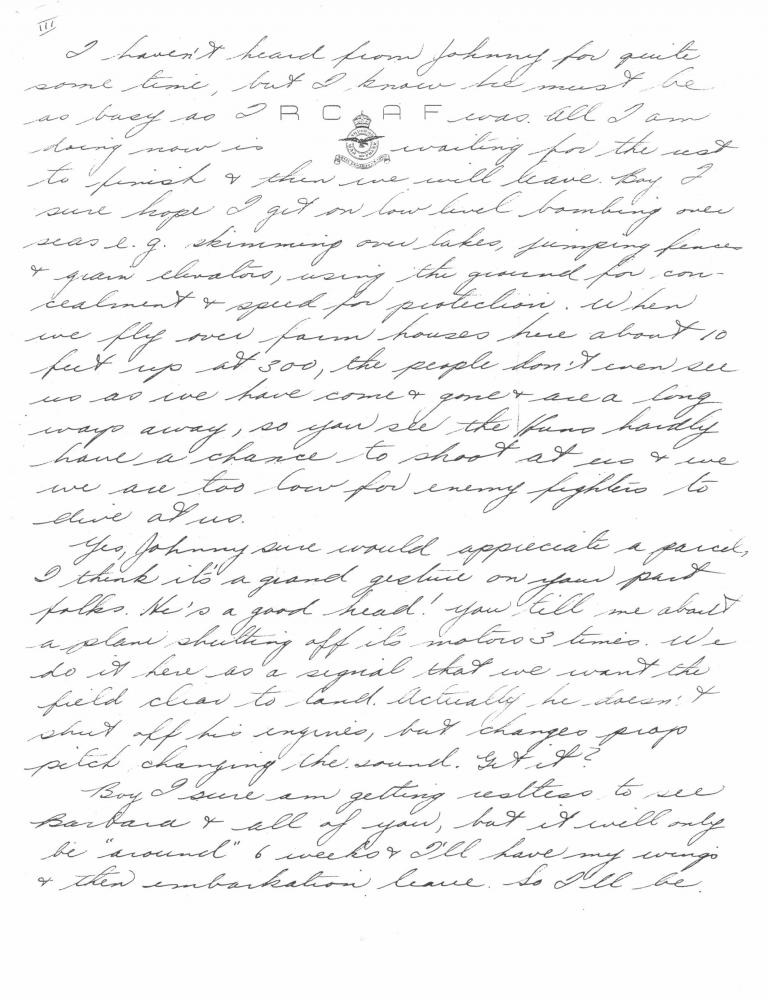 III
I haven't heard from Johnny for quite
some time, but I know he must be
as busy as I R C A F was. All I am
doing now is waiting for the rest
to finish & then we will leave. Boy I
sure hope I get on low level bombing over
seas e.g. skimming over lakes, jumping fences
& grain elevators, using the ground for con-
cealment & speed for protection. When
we fly over farm houses here about 10
feet up at 300, the people don't even see
us as we have come & gone & are a long
ways away, so you see the Huns hardly
have a chance to shoot at us & we
we are too low for enemy fighters to
dive at us.
Yes, Johnny sure would appreciate a parcel,
I think it's a grand gesture on your part
folks. He's a good head! You tell me about
a plane shutting off its motors 3 times. We
do it here as a signal that we want the
field clear to land. Actually he doesn't
shut off his engines, but changes prop
pitch changing the sound. Get it?
Boy I sure am getting restless to see
Barbara & all of you, but it will only
be "around" 6 weeks & I'll have my wings
& then embarkation leave. So I'll be